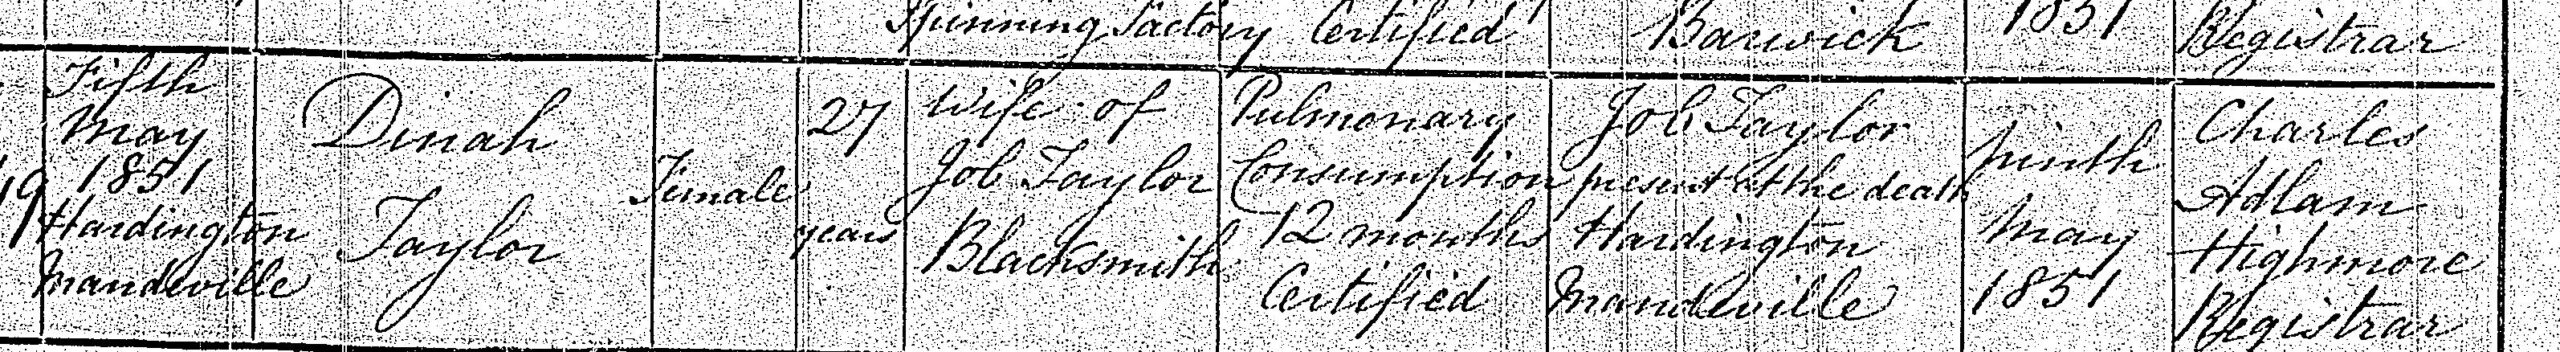 Spinning Factory Certified Barwick 1851 Registrar
19
Fifth
May
1851
Hardington
Mandeville
Dinah
Taylor
Female
27
years
Wife of
Job Taylor
Blacksmith
Pulmonary
Consumption
12 months
Certified
Job Taylor
present at the death
Hardington
Mandeville
Ninth
May
1851
Charles
Adlam
Highmore
Registrar